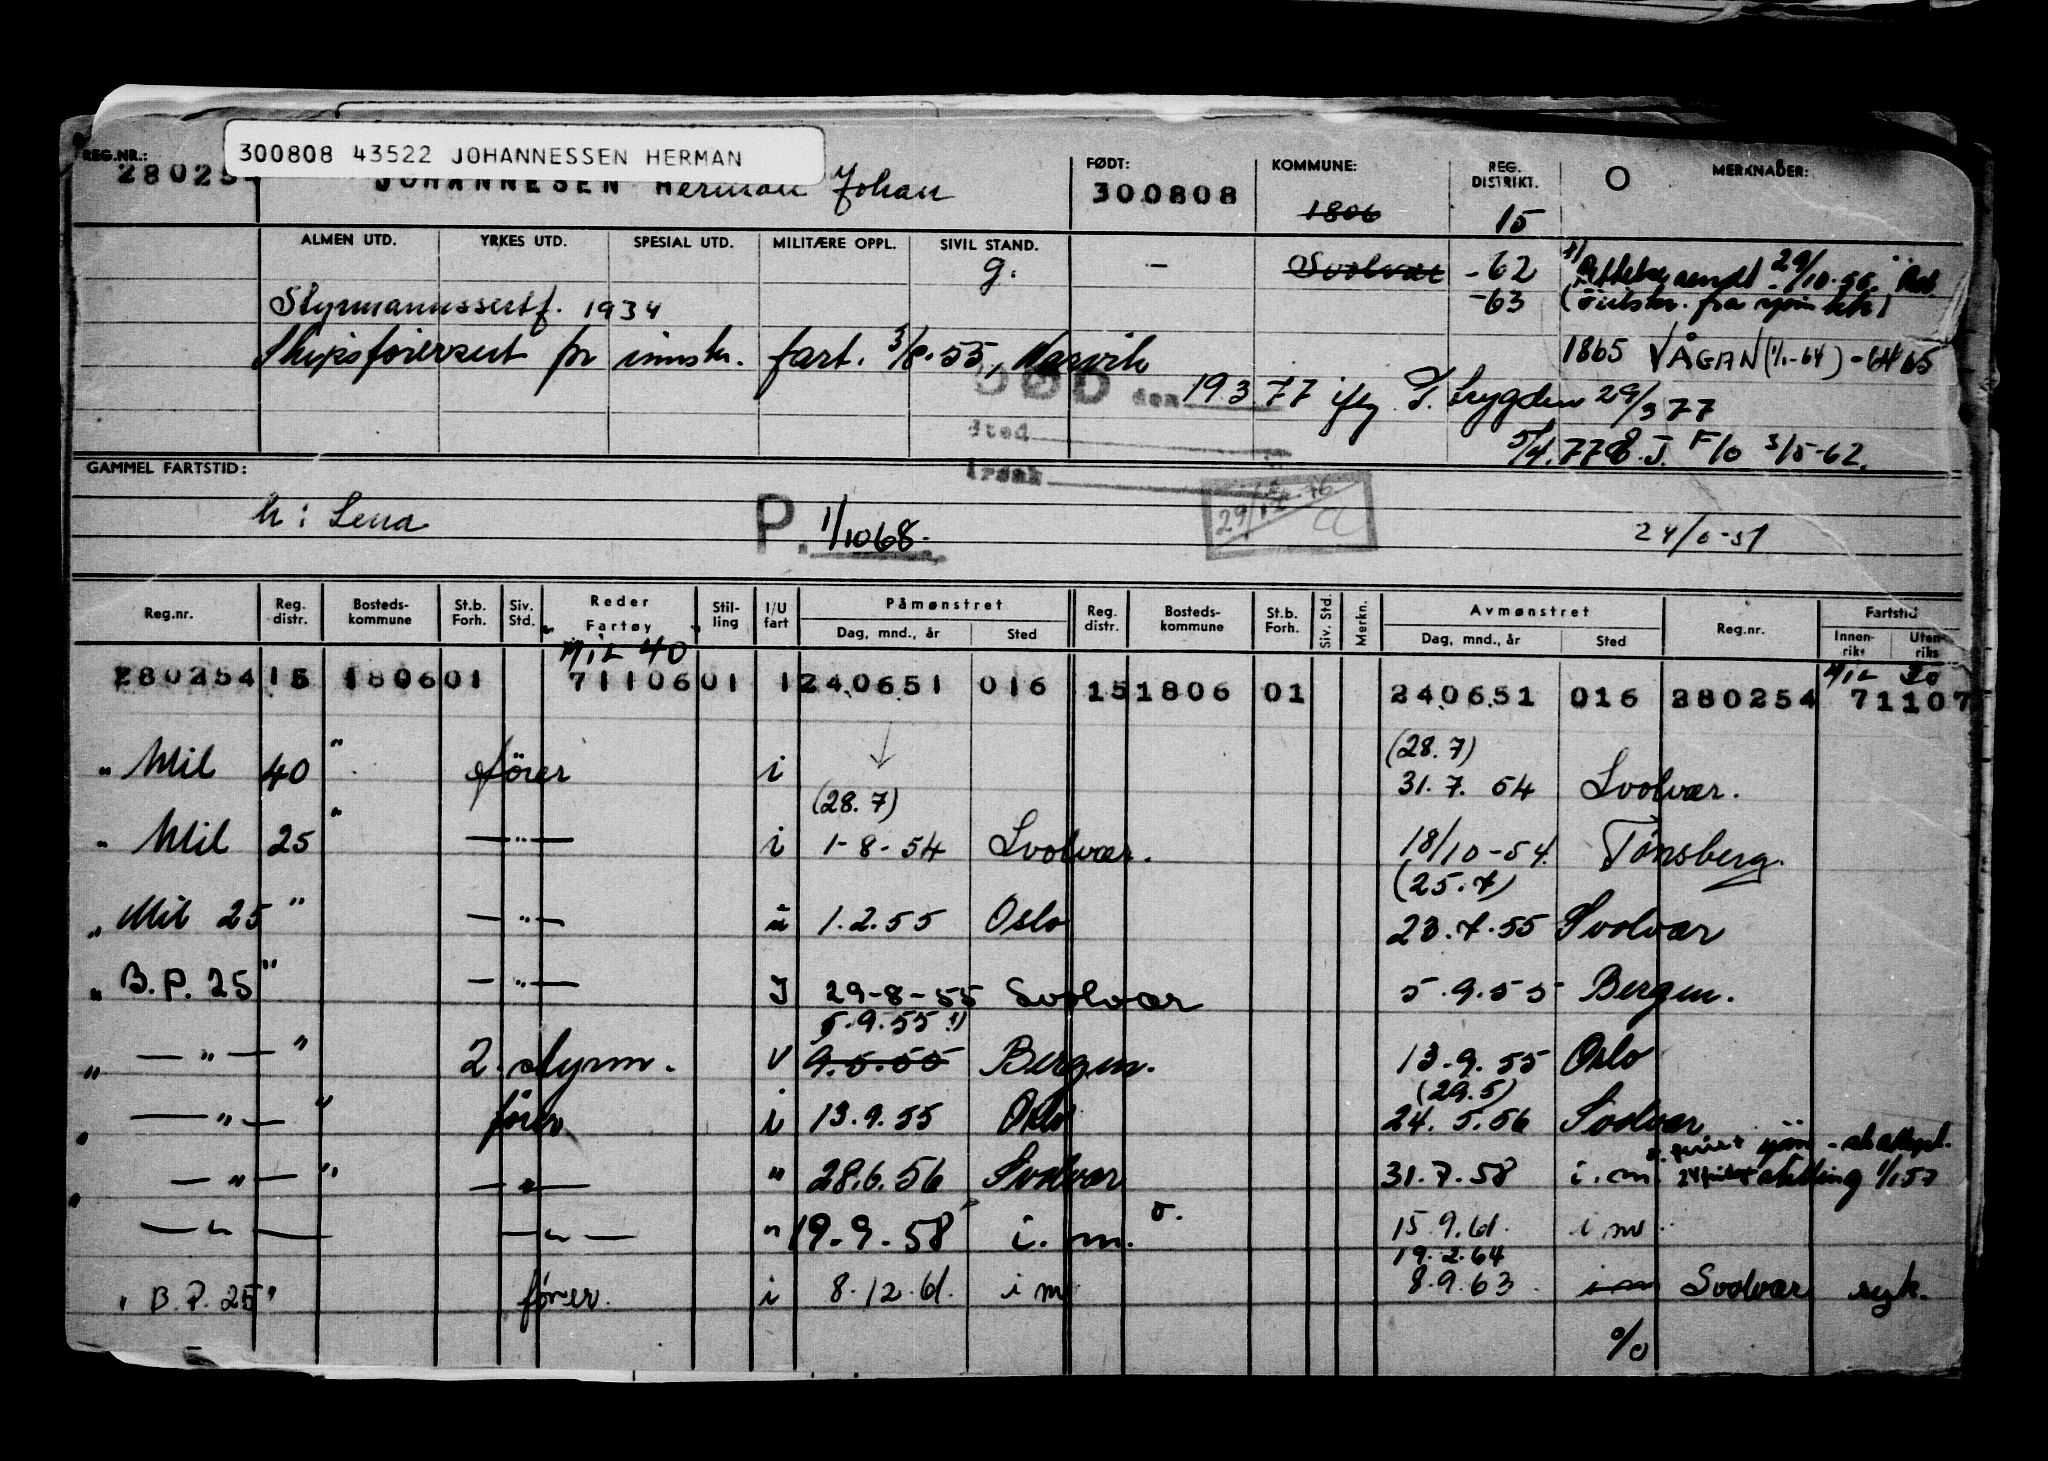 300808 43522 JOHANNESSEN HERMAN
REG.NR.:
28025
JOHANNESEN Herman Johan
FØDT:
300808
KOMMUNE:
1806
REG. DISTRIKT.
15
O
MERKNADER:
ALMEN UTD. YRKES UTD. SPESIAL UTD. MILITÆRE OPPL. SIVIL STAND.
g. — Svolvær -62
-63
29/10.56.
Styrmannssertf. 1934
Skipsførersert for innskr. fart. 3/8.55, Narvik
1865 VÅGAN (1/1-64) - 64 65
DØD den 19 3 77 iflg. T. Trygden 29/3 77
Sted
5/4.77 E.J. F/o 3/5-62.
Årsak
GAMMEL FARTSTID:
h: Lena
P. 1/10 68.
24/6-51
Reg.nr. Reg. distr. Bosteds- kommune St.b. Forh. Siv. Std. Reder Fartøy Stil- ling I/U fart Påmønstret Dag, mnd., år Sted Reg. distr. Bosteds- kommune St.b. Forh. Siv. Std. Merkn. Avmønstret Dag, mnd., år Sted Reg.nr. Fartstid Innen- riks Uten- riks
Mil 40
280254 15 1806 01 71106 01 1 240651 016 15 1806 01 240651 016 280254 71107
(28.7)
" Mil 40 " fører i 31.7. 54 Svolvær.
(28.7)
" Mil 25 " — " — i 1-8-54 Svolvær. 18/10-54. Tønsberg.
(25.7)
" Mil 25 " — " — u 1.2.55 Oslo 23.7.55 Svolvær
" B.P. 25 " — " — I 29-8-55 Svolvær 5.9.55 Bergen.
5.9.55 1)
" — " — " 2. styrm. V 9.5.55 Bergen. 13.9.55 Oslo
(29.5)
" — " — " fører i 13.9.55 Oslo 24.5.56 Svolvær
" — " — " — " — " 28.6.56 Svolvær 31.7.58 i.m. stilling 1/1.57
— " — — " — " 19.9.58 i. m. o. 15.9.61. i m
19.2.64
" B.P. 25 " fører. i 8.12.61. i m 8.9.63. i m Svolvær syk.
%